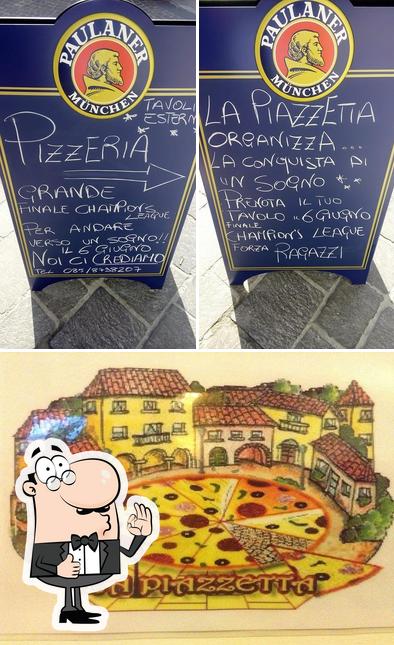 PAULANER
MÜNCHEN
TAVOLI
ESTERN
PIZZERIA
GRANDE
FINALE CHAMPION'S
LEAGUE
PER ANDARE
VERSO UN SOGNO!!
IL 6 GIUGNO
NOI CI CREDIAMO
TEL 085/8738207
PAULANER
MÜNCHEN
LA PIAZZETTA
ORGANIZZA...
LA CONQUISTA DI
UN SOGNO
PRENOTA IL TUO
TAVOLO IL 6 GIUGNO
FINALE
CHAMPION'S LEAGUE
FORZA RAGAZZI
PIAZZETTA